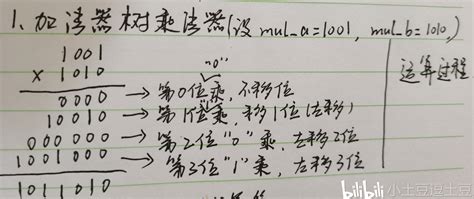 1. 加法器树乘法器(设 mul_a=1001, mul_b=1010,)
1001
x 1010
"0"
0000 → 第0位乘, 不移位
10010 → 第1位乘, 移1位(左移)
000000 → 第2位"0"乘, 左移2位
1001000 → 第3位"1"乘, 左移3位
1011010
运算过程
bilibili 小土豆没土豆